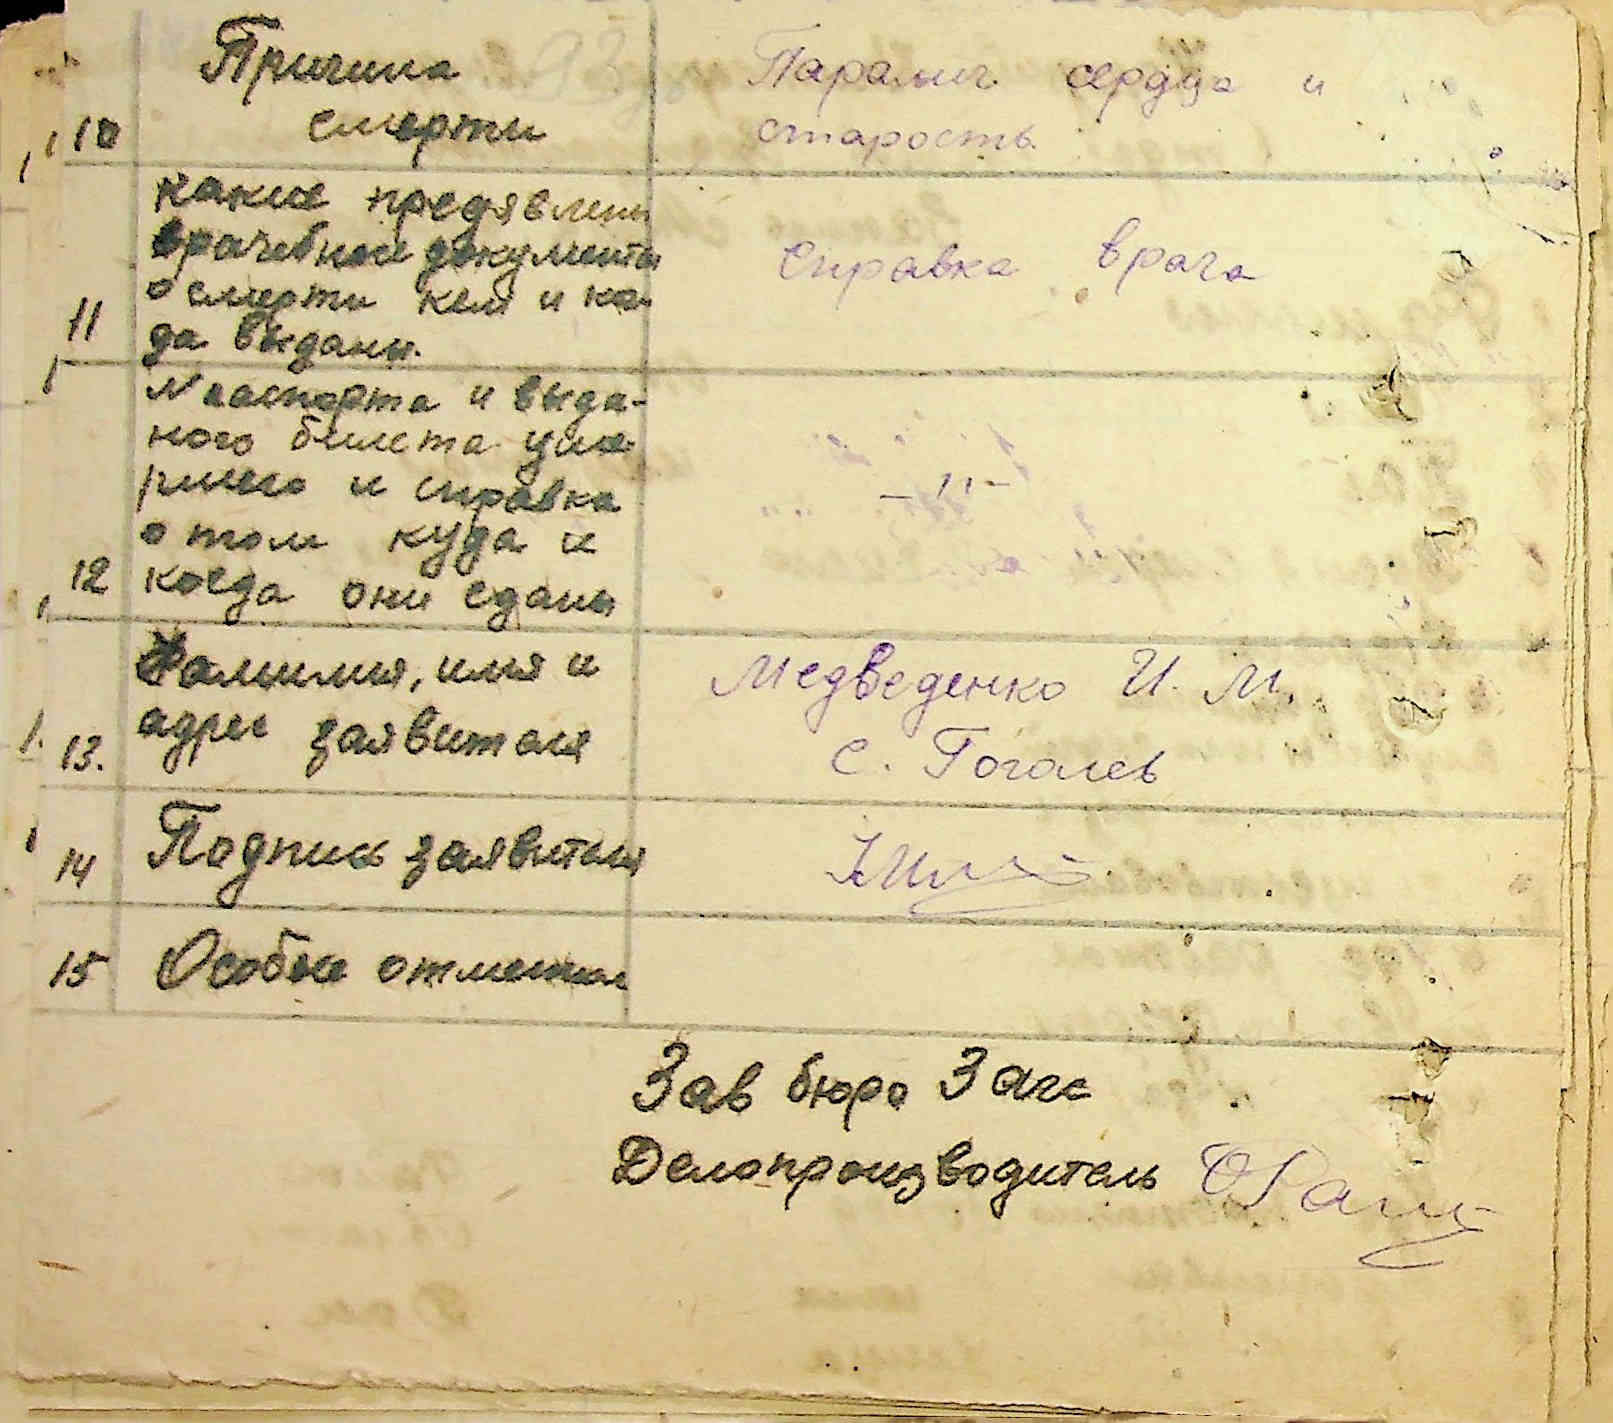 Причина
смерти
10
Паралич сердца и
старость
какие предявлены
врачебной документы
о смерти кем и ко-
да выданы.
11
Справка врача
N паспорта и выда-
ного билета уме-
ршего и справка
о том куда и
когда они сданы
12
-"-
Фамилия, имя и
адрес заявителя
13.
Медведенко И. М.
с. Гоголев
14
Подпись заявителя
15
Особые отметки
Зав бюро Загс
Делопроизводитель